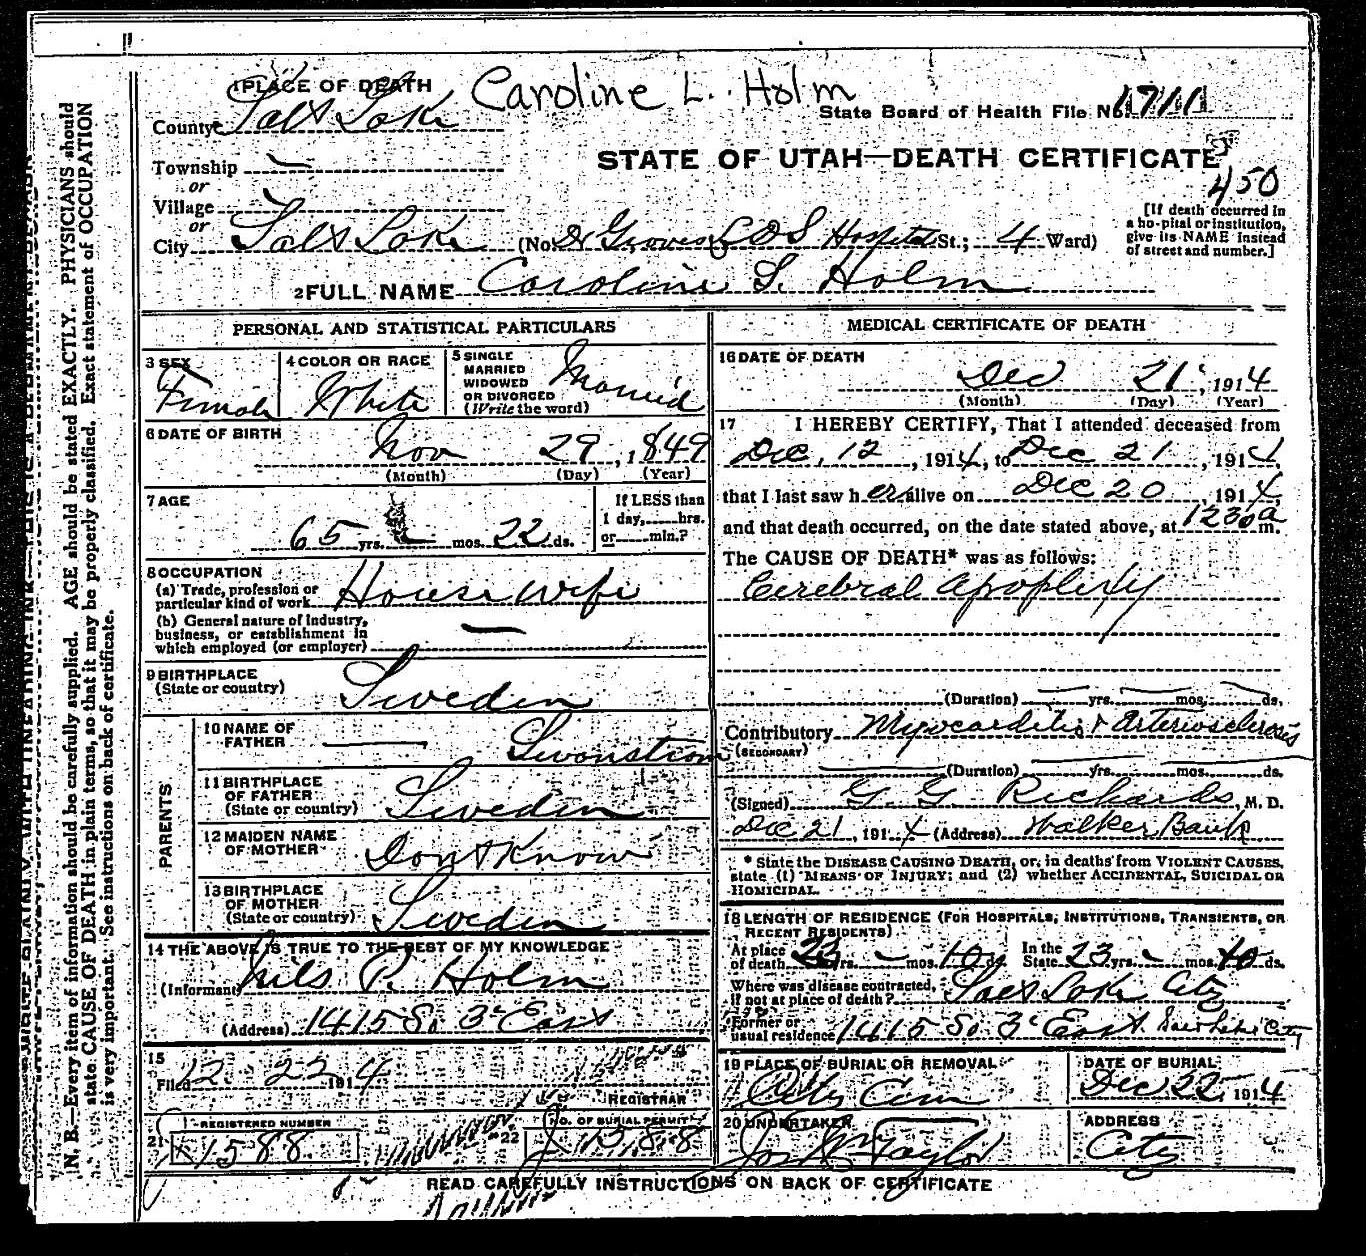 N. B.—Every item of information should be carefully supplied. AGE should be stated EXACTLY. PHYSICIANS should
state CAUSE OF DEATH in plain terms, so that it may be properly classified. Exact statement of OCCUPATION
is very important. See instructions on back of certificate.
1 PLACE OF DEATH Caroline L. Holm
County Salt Lake State Board of Health File No. 1711
Township —
STATE OF UTAH—DEATH CERTIFICATE
or
450
Village
or
City Salt Lake (No. Dr Groves LDS Hospital St.; 4 Ward)
[If death occurred in
a hospital or institution,
give its NAME instead
of street and number.]
2 FULL NAME Caroline S. Holm
PERSONAL AND STATISTICAL PARTICULARS
3 SEX
Female
4 COLOR OR RACE
White
5 SINGLE
MARRIED
WIDOWED
OR DIVORCED
(Write the word)
Married
6 DATE OF BIRTH
Nov 29, 1849
(Month) (Day) (Year)
7 AGE
65 yrs. mos. 22 ds.
If LESS than
1 day, hrs.
or min.?
8 OCCUPATION
(a) Trade, profession or
particular kind of work House wife
(b) General nature of industry,
business, or establishment in
which employed (or employer) —
9 BIRTHPLACE
(State or country) Sweden
PARENTS
10 NAME OF
FATHER — Swanstrom
11 BIRTHPLACE
OF FATHER
(State or country) Sweden
12 MAIDEN NAME
OF MOTHER Dont Know
13 BIRTHPLACE
OF MOTHER
(State or country) Sweden
14 THE ABOVE IS TRUE TO THE BEST OF MY KNOWLEDGE
(Informant) Nils P. Holm
(Address) 1415 So 3d East
15
Filed 12 22 1914
REGISTRAR
21 REGISTERED NUMBER
1588
22 NO. OF BURIAL PERMIT
1588
MEDICAL CERTIFICATE OF DEATH
16 DATE OF DEATH
Dec 21, 1914
(Month) (Day) (Year)
17 I HEREBY CERTIFY, That I attended deceased from
Dec. 12, 1914, to Dec 21, 1914,
that I last saw her alive on Dec 20, 1914,
and that death occurred, on the date stated above, at 1230 a m.
The CAUSE OF DEATH* was as follows:
Cerebral apoplexy
(Duration) — yrs. — mos. — ds.
Contributory Myocarditis & Arteriosclerosis
(SECONDARY)
(Duration) yrs. mos. ds.
(Signed) G. G. Richards, M. D.
Dec 21, 1914 (Address) Walker Bank
* State the DISEASE CAUSING DEATH, or, in deaths from VIOLENT CAUSES,
state (1) MEANS OF INJURY; and (2) whether ACCIDENTAL, SUICIDAL OR
HOMICIDAL.
18 LENGTH OF RESIDENCE (FOR HOSPITALS, INSTITUTIONS, TRANSIENTS, OR
RECENT RESIDENTS)
At place
of death 23 yrs. — mos. 10 ds. In the
State 23 yrs. — mos. 10 ds.
Where was disease contracted,
if not at place of death? Salt Lake City
Former or
usual residence 1415 So 3d East. Salt Lake City
19 PLACE OF BURIAL OR REMOVAL
City Cem
DATE OF BURIAL
Dec 22, 1914
20 UNDERTAKER
Jos Wm Taylor
ADDRESS
City
READ CAREFULLY INSTRUCTIONS ON BACK OF CERTIFICATE